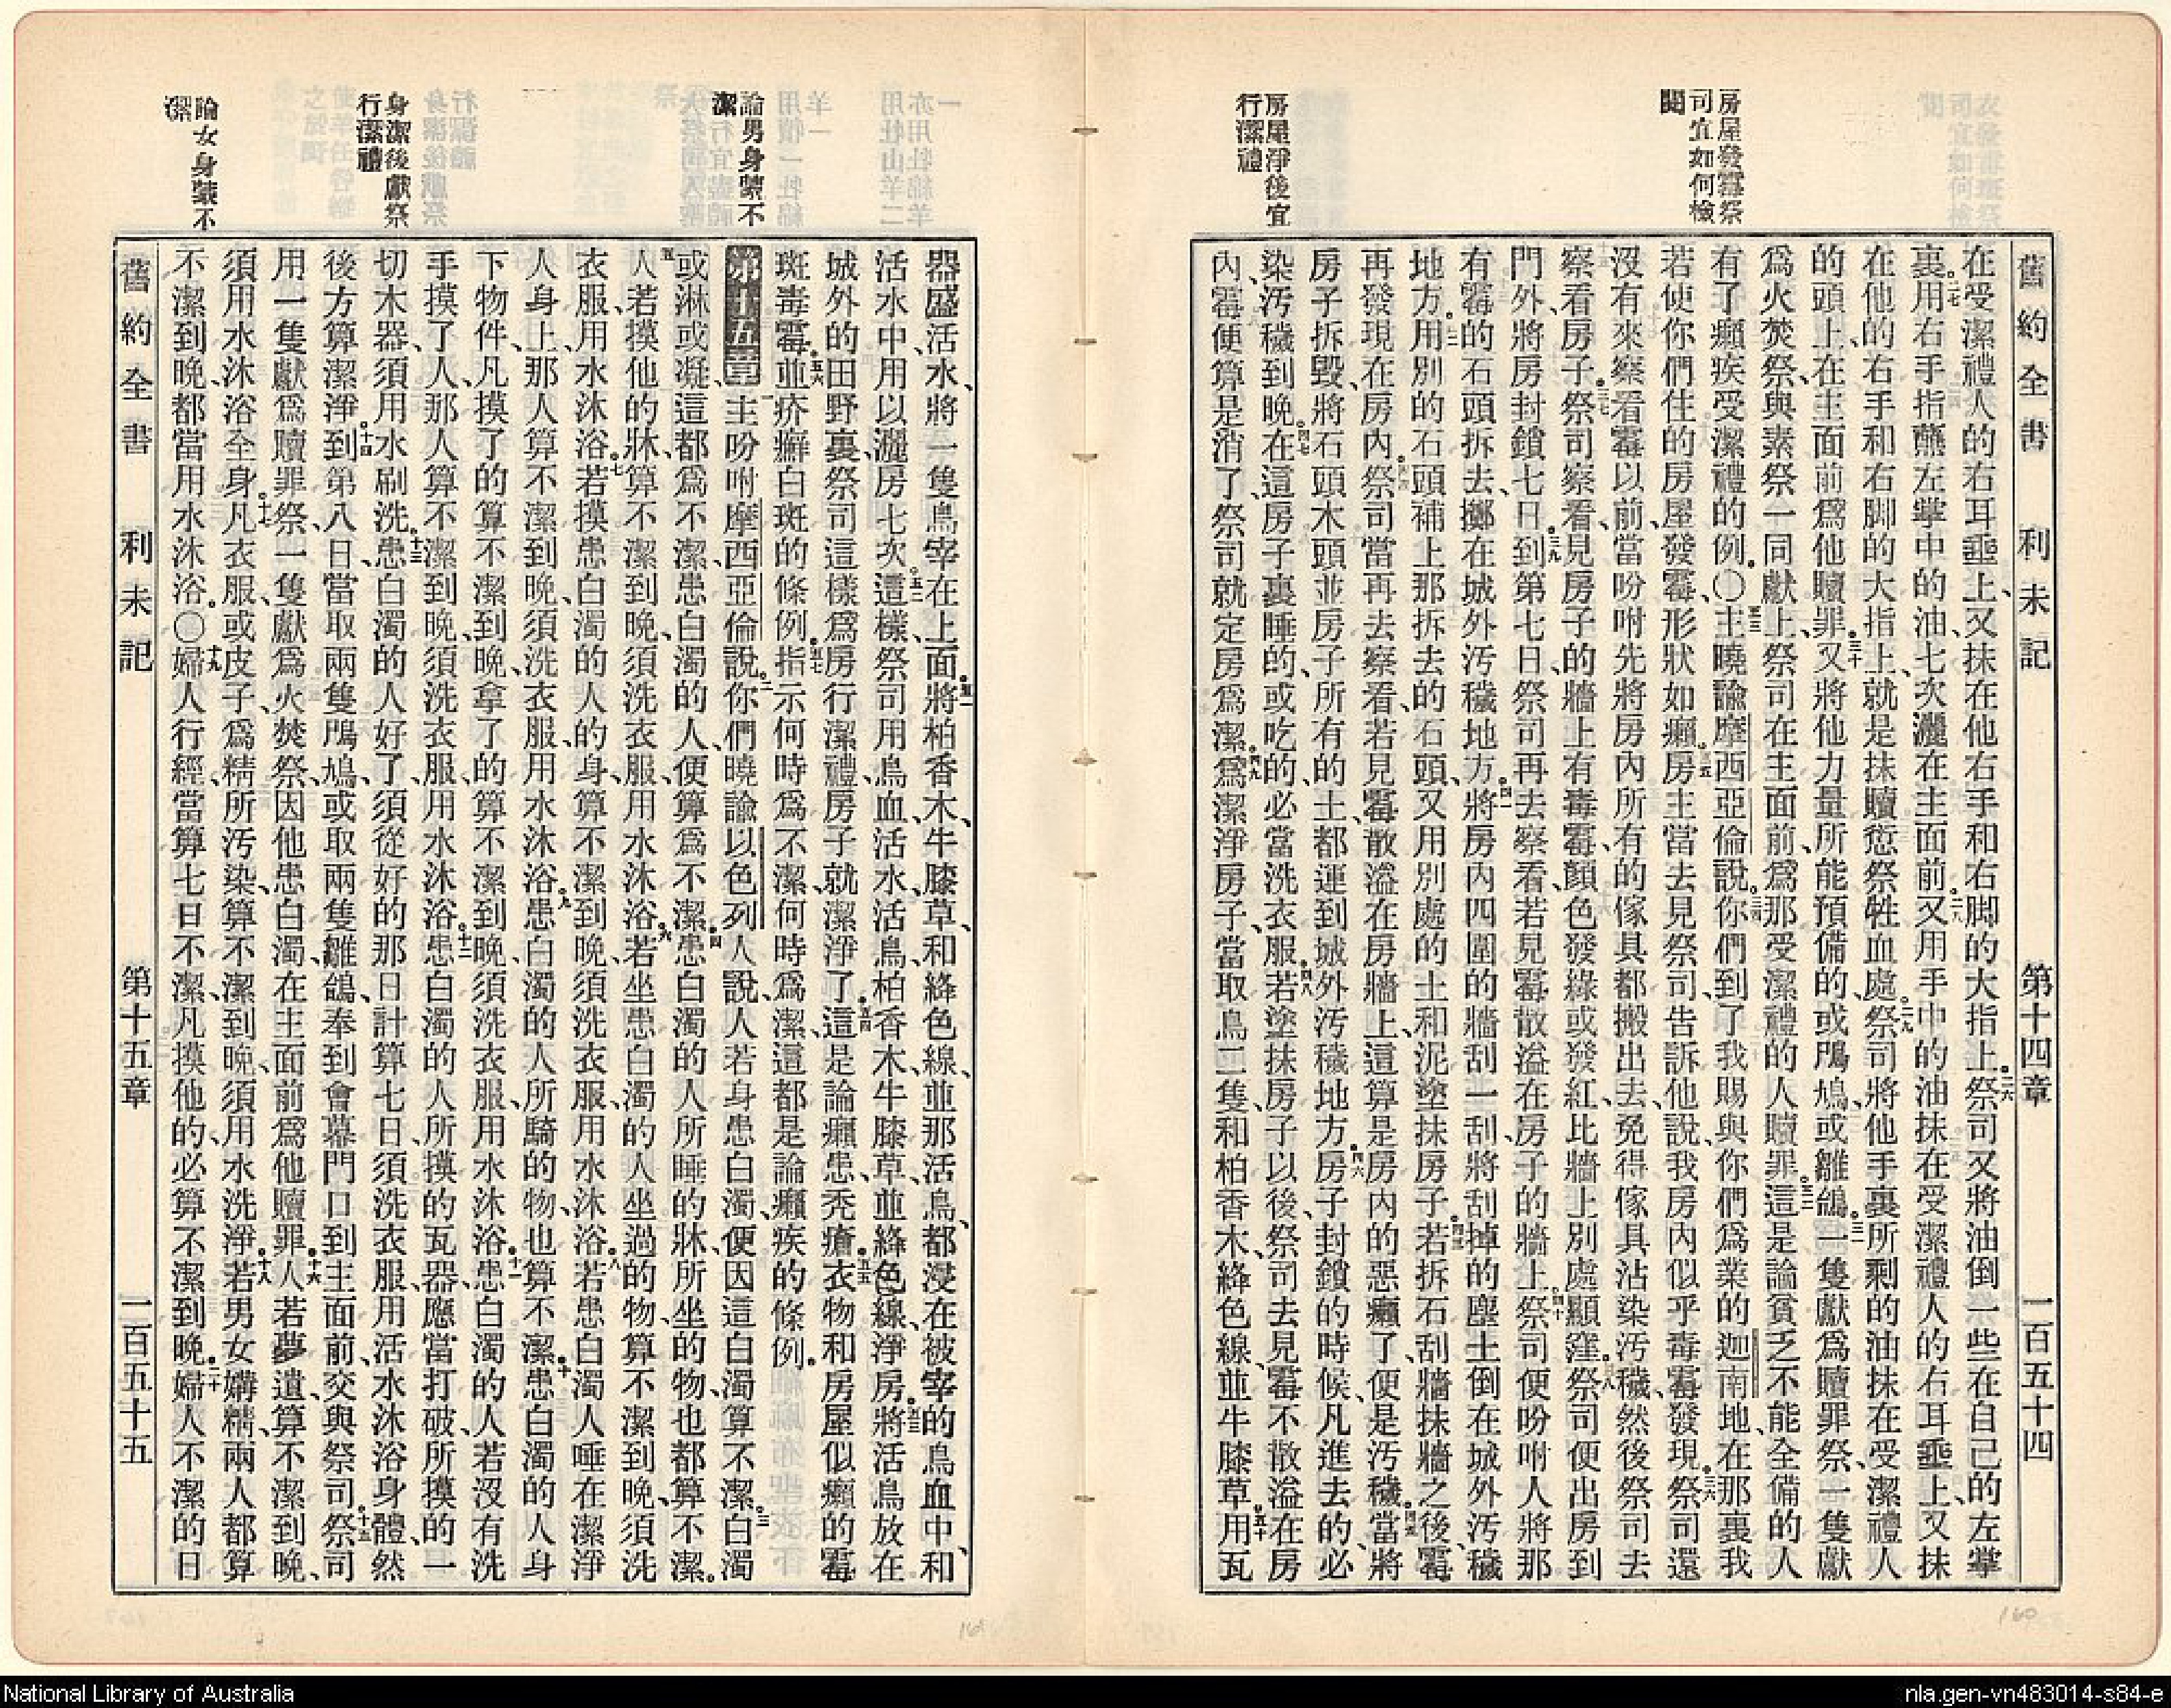 房屋發霉祭
司宜如何檢
閱
房屋淨後宜
行潔禮
舊約全書 利未記 第十四章 一百五十四
在受潔禮人的右耳垂上、又抹在他右手和右脚的大指上。二六祭司又將油倒一些在自己的左掌
裏。二七用右手指蘸左掌中的油、七次灑在主面前。二八又用手中的油抹在受潔禮人的右耳垂上、又抹
在他的右手和右脚的大指上、就是抹贖愆祭牲血處。二九祭司將他手裏所剩的油抹在受潔禮人
的頭上、在主面前爲他贖罪。三十又將他力量所能預備的、或鳲鳩或雛鴿。三一一隻獻爲贖罪祭、一隻獻
爲火焚祭、與素祭一同獻上、祭司在主面前、爲那受潔禮的人贖罪。三二這是論貧乏不能全備的人
有了癩疾受潔禮的例。〇三三主曉諭摩西亞倫說。三四你們到了我賜與你們爲業的迦南地、在那裏我
若使你們住的房屋發霉、形狀如癩。三五房主當去見祭司、告訴他說、我房內似乎毒霉發現。三六祭司還
沒有來察看霉以前、當吩咐先將房內所有的傢具都搬出去、免得傢具沾染汚穢、然後祭司去
察看房子。三七祭司察看、見房子的牆上有毒霉、顏色發綠或發紅、比牆上別處顯窪。三八祭司便出房到
門外、將房封鎖七日。三九到第七日、祭司再去察看、若見霉散溢在房子的牆上。四十祭司便吩咐人將那
有霉的石頭拆去、擲在城外汚穢地方。四一將房內四圍的牆刮一刮、將刮掉的塵土倒在城外汚穢
地方。四二用別的石頭補上那拆去的石頭、又用別處的土和泥塗抹房子。四三若拆石刮牆抹牆之後、霉
再發現在房內。四四祭司當再去察看、若見霉散溢在房牆上、這算是房內的惡癩了、便是汚穢。四五當將
房子拆毀、將石頭木頭並房子所有的土、都運到城外汚穢地方。四六房子封鎖的時候、凡進去的、必
染汚穢到晚。四七在這房子裏睡的、或吃的、必當洗衣服。四八若塗抹房子以後、祭司去見霉不散溢在房
內、霉便算是消了、祭司就定房爲潔。四九爲潔淨房子、當取鳥二隻、和柏香木、絳色線、並牛膝草。五十用瓦
論男身蒙不
潔
身潔後獻祭
行潔禮
論女身蒙不
潔
器盛活水、將一隻鳥宰在上面。五一將柏香木、牛膝草、和絳色線、並那活鳥、都浸在被宰的鳥血中、和
活水中、用以灑房七次。五二這樣、祭司用鳥血、活水、活鳥、柏香木、牛膝草、並絳色線、淨房。五三將活鳥放在
城外的田野裏、祭司這樣爲房行潔禮、房子就潔淨了。五四這是論癩患、禿瘡。五五衣物和房屋似癩的霉
斑毒霉。五六並疥癬白斑的條例。五七指示何時爲不潔、何時爲潔、這都是論癩疾的條例。
第十五章 一主吩咐摩西亞倫說。二你們曉諭以色列人說、人若身患白濁、便因這白濁算不潔。三白濁
或淋或凝、這都爲不潔、患白濁的人、便算爲不潔。四患白濁的人所睡的牀、所坐的物、也都算不潔。
五人若摸他的牀、算不潔到晚、須洗衣服、用水沐浴。六若坐患白濁的人坐過的物、算不潔到晚、須洗
衣服、用水沐浴。七若摸患白濁的人的身、算不潔到晚、須洗衣服、用水沐浴。八若患白濁人唾在潔淨
人身上、那人算不潔到晚、須洗衣服、用水沐浴。九患白濁的人所騎的物、也算不潔。十患白濁的人身
下物件、凡摸了的、算不潔到晚、拿了的、算不潔到晚、須洗衣服、用水沐浴。十一患白濁的人、若沒有洗
手摸了人、那人算不潔到晚、須洗衣服、用水沐浴。十二患白濁的人所摸的瓦器、應當打破、所摸的一
切木器、須用水刷洗。十三患白濁的人好了、須從好的那日計算七日、須洗衣服、用活水沐浴身體、然
後方算潔淨。十四到第八日、當取兩隻鳲鳩、或取兩隻雛鴿、奉到會幕門口到主面前、交與祭司。十五祭司
用一隻獻爲贖罪祭、一隻獻爲火焚祭、因他患白濁、在主面前爲他贖罪。十六人若夢遺、算不潔到晚、
須用水沐浴全身。十七凡衣服、或皮子、爲精所汚染、算不潔到晚、須用水洗淨。十八若男女媾精、兩人都算
不潔到晚、都當用水沐浴。〇十九婦人行經、當算七日不潔、凡摸他的、必算不潔到晚。二十婦人不潔的日
舊約全書 利未記 第十五章 一百五十五
160
161
National Library of Australia
nla.gen-vn483014-s84-e